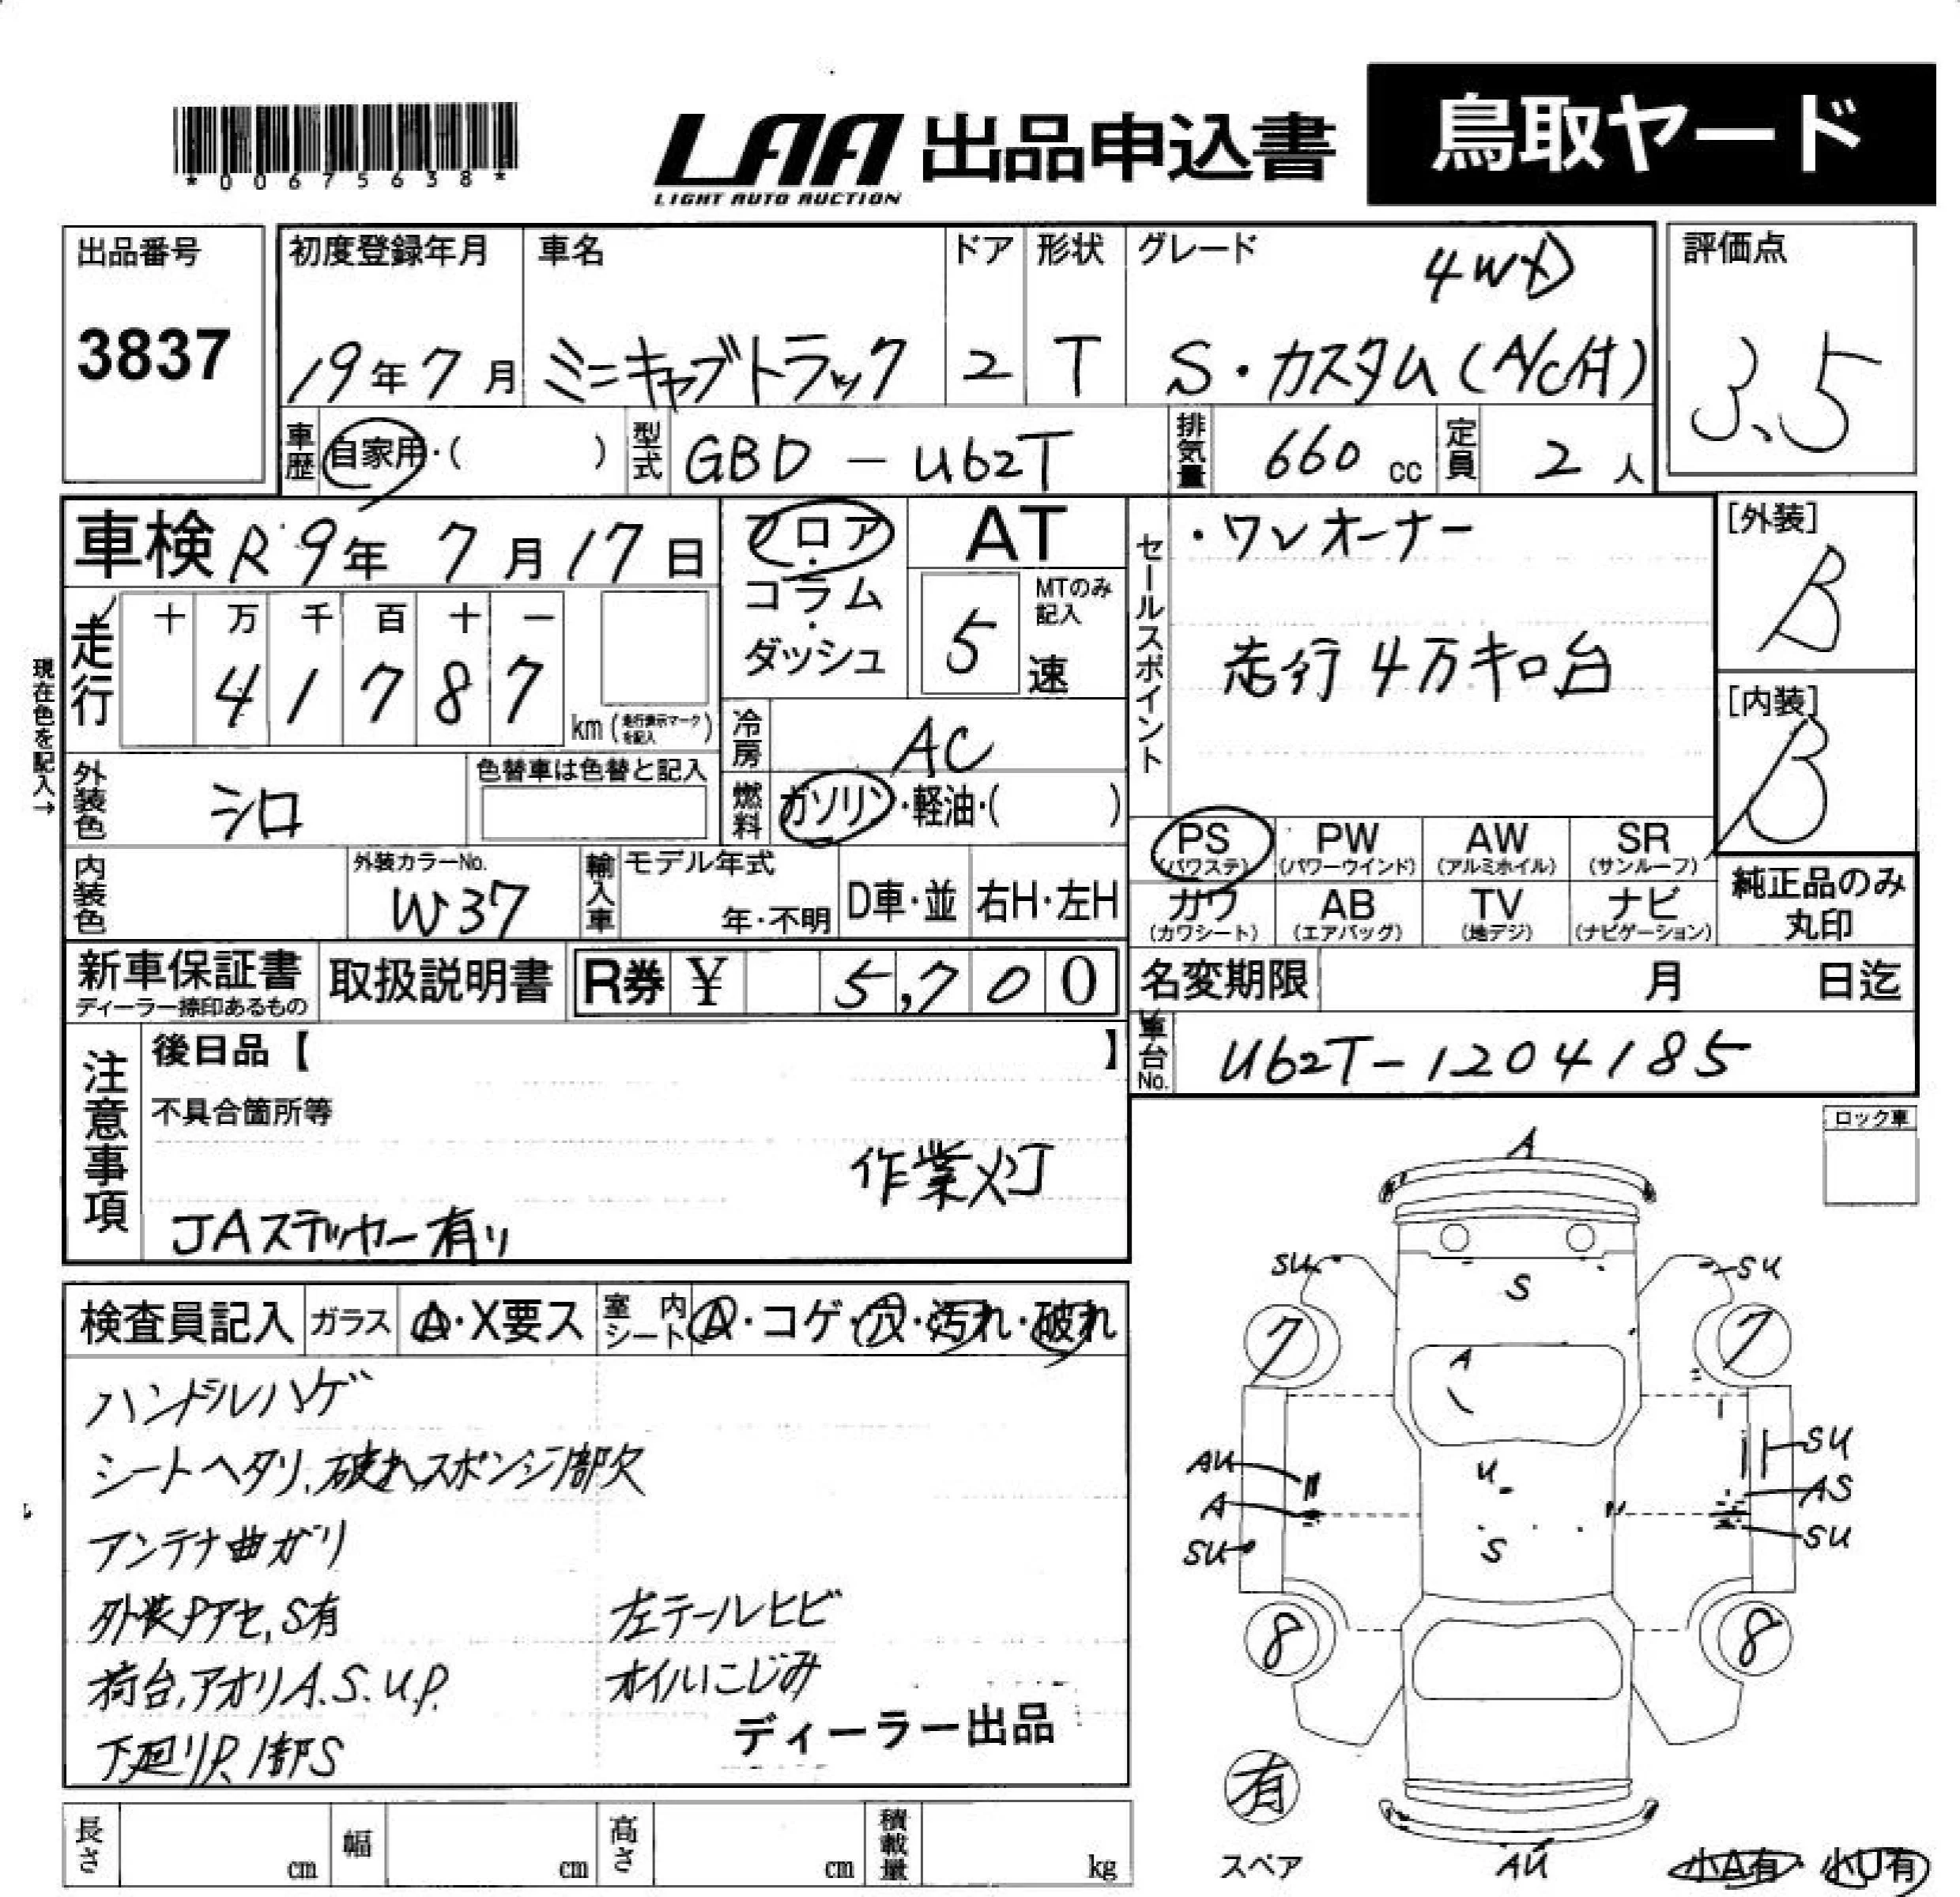 *00675638*
LAA 出品申込書
LIGHT AUTO AUCTION
鳥取ヤード
出品番号
3837
初度登録年月
19年7月
車名
ミニキャブトラック
ドア
2
形状
T
グレード
4WD
S・カスタム(A/C付)
評価点
3.5
車歴 自家用・( )
型式 GBD-U62T
排気量 660 cc
定員 2 人
車検 R9年7月17日
フロア・コラム・ダッシュ
AT
5 速
MTのみ記入
セールスポイント
・ワンオーナー
走行4万キロ台
[外装]
B
[内装]
B
現在色を記入→
走行
十 万 千 百 十 一
4 1 7 8 7
km(走行表示マークを記入)
冷房 AC
燃料 ガソリン・軽油・( )
外装色 シロ
色替車は色替と記入
内装色
外装カラーNo.
W37
輸入車
モデル年式
年・不明
D車・並
右H・左H
PS (パワステ)
PW (パワーウインド)
AW (アルミホイル)
SR (サンルーフ)
カワ (カワシート)
AB (エアバッグ)
TV (地デジ)
ナビ (ナビゲーション)
純正品のみ
丸印
新車保証書
ディーラー捺印あるもの
取扱説明書
R券 ¥ 5,700
名変期限 月 日迄
車台No. U62T-1204185
注意事項
後日品【 】
不具合箇所等
作業灯
JAステッカー有り
ロック車
検査員記入
ガラス A・X要ス
室内シート A・コゲ・穴・汚れ・破れ
ハンドルハゲ
シートヘタリ、破れ、スポンジ1部欠
アンテナ曲がり
外装Pアセ,S有
左テールヒビ
荷台,アオリA.S.U.P.
オイルにじみ
下廻りP、1部S
ディーラー出品
A
SU
SU
S
7
7
A
SU
AU
U
AS
A
SU
SU
S
8
8
有
スペア
AU
小A有・小U有
長さ cm
幅 cm
高さ cm
積載量 kg